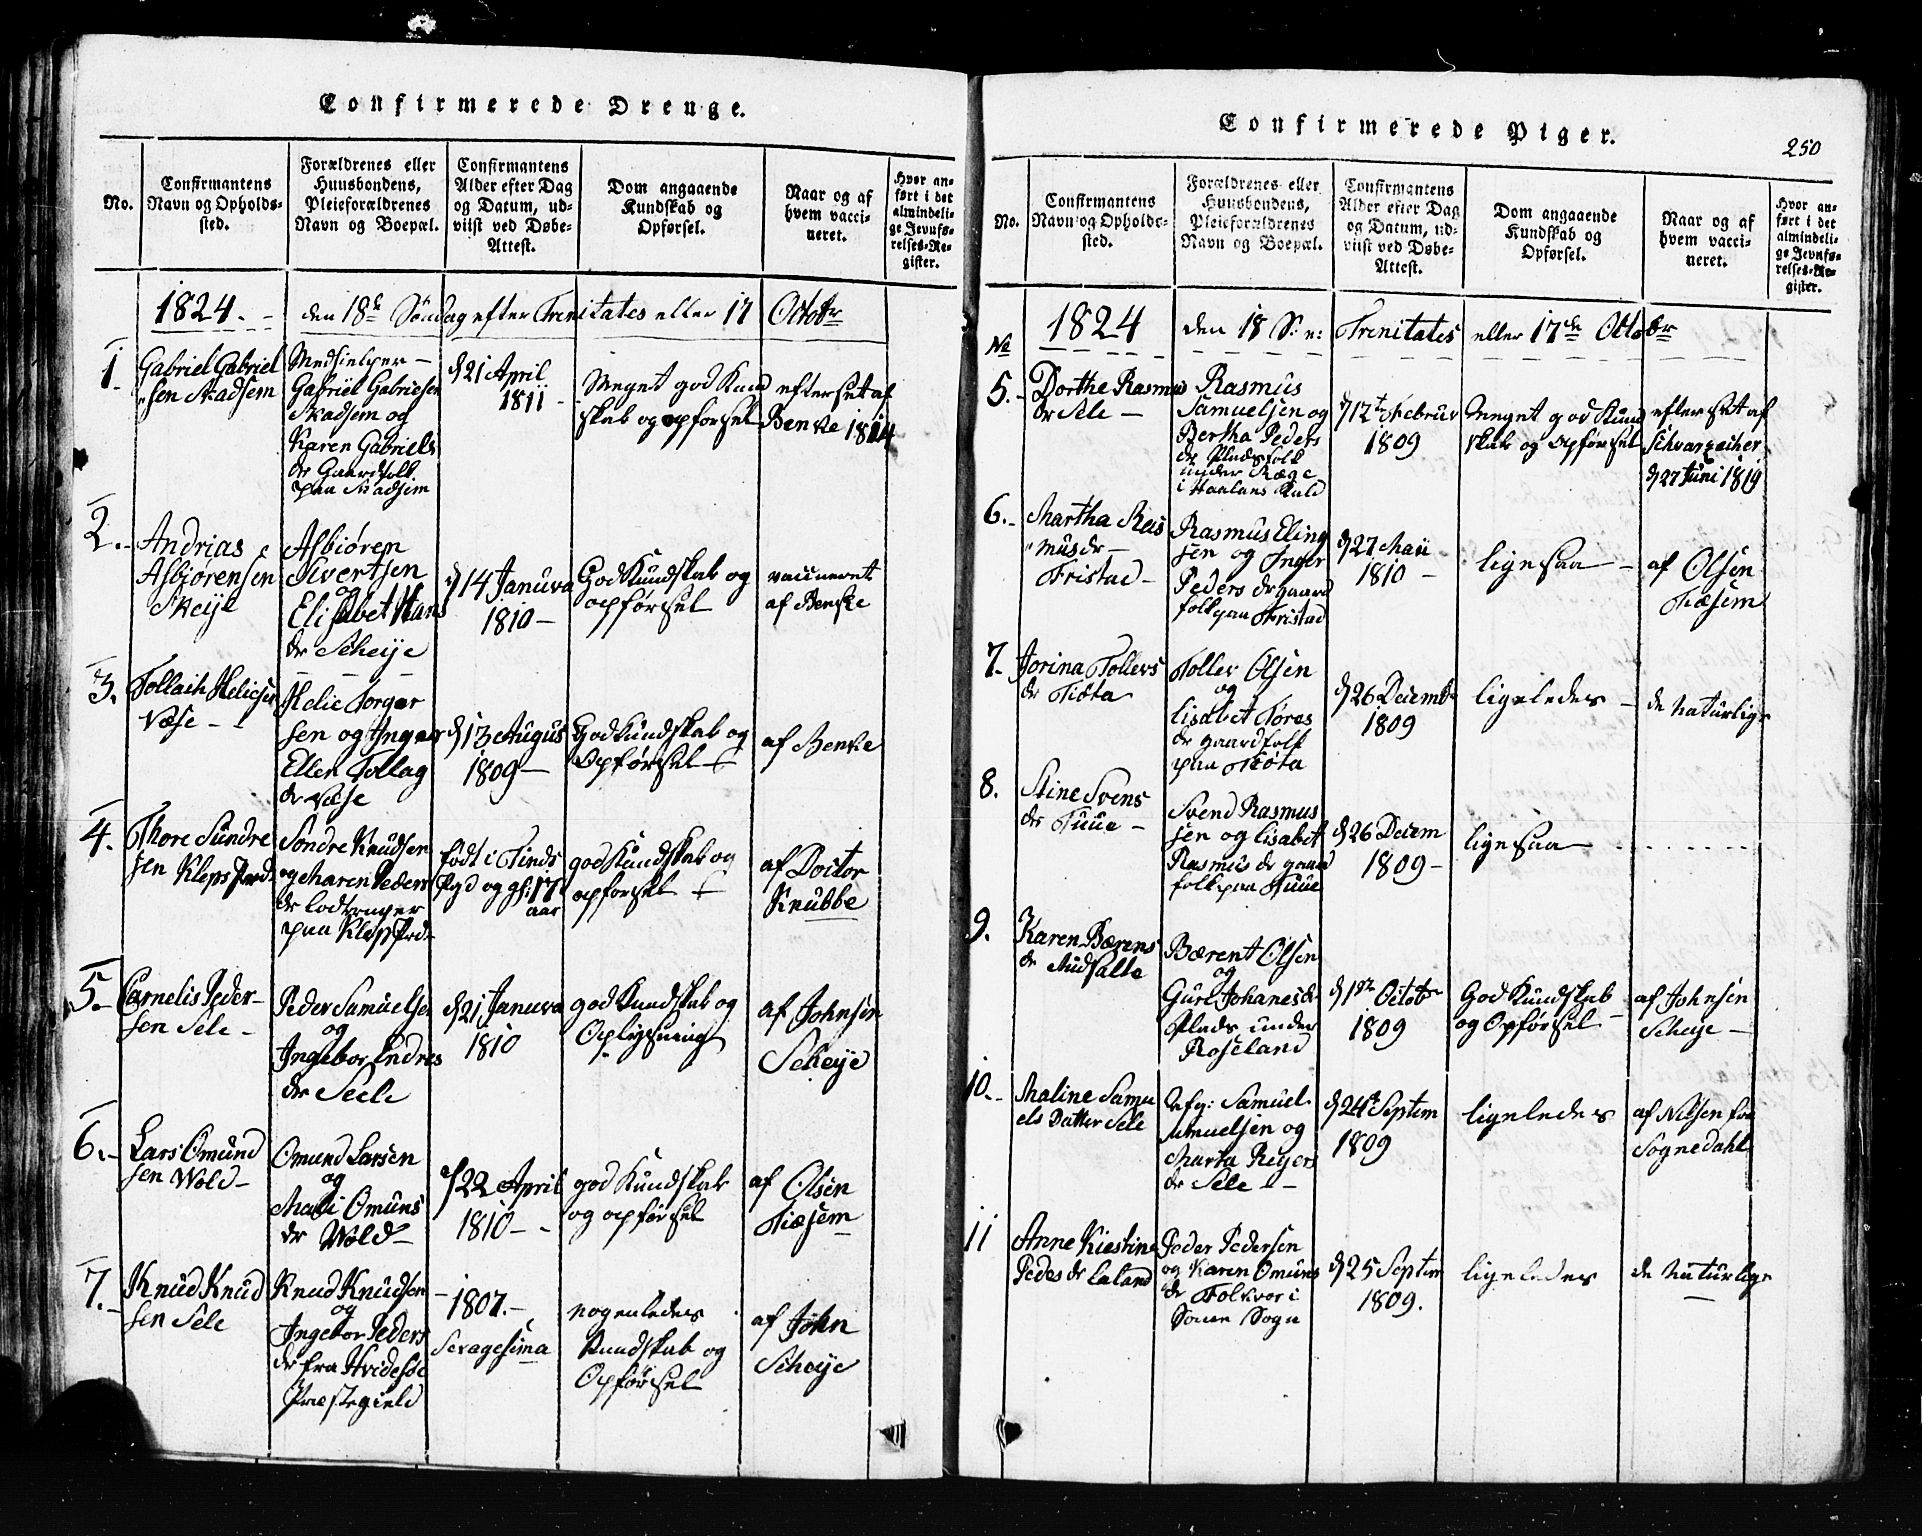 Confirmerede Drenge.
No.
Confirmantens
Navn og Opholds-
sted.
Forældrenes eller
Huusbondens,
Pleieforældrenes
Navn og Boepæl.
Confirmantens
Alder efter Dag
og Datum, ud-
viist ved Døbe-
Attest.
Dom angaaende
Kundskab og
Opførsel.
Naar og af
hvem vacci-
neret.
Hvor an-
ført i det
almindeli-
ge Jevnfø-
relses-Re-
gister.
1824. den 18de Søndag efter Trenitates eller 17 Octobr
1.
Gabriel Gabriel
sen Skadsem
Medhielper
Gabriel Gabrielsen
Skadsem og
Karen Gabriels
dr Gaardfolk
paa Skadsem
d 21 April
1811
Meget god Kund
skab og opførsel
efterset af
Benke 1814
2.
Andrias
Asbjørensen
Skeije
Asbiøren
Sivertsen
og
Elisabet Hans
dr Scheije
d 14 Januva
1810
God Kundskab og
opførsel
vaccineret
af Benke
3.
Tollach Helicsen
Væse
Helie Torger
sen og Inger
Ellen Tollag
dr Væse
d 13 Augus
1809
God Kundskab og
Opførsel
af Benke
4.
Thore Sundre
sen Kleps Prd.
Søndre Knudsen
og Maren Peders
dr
paa Klep Prd.
født i Tinds
Pgd og gl: 17
aar
god Kundskab og
opførsel
af Doctor
Knubbe
5.
Cornelis Peder-
sen Sele
Peder Samuelsen
og
Ingebor Endres
dr Seele
d 21 Januva
1810
god Kundskab og
Oplysning
af Johnsen
Scheije
6.
Lars Omund
sen Wold
Omund Larsen
og
Mali Omuns
dr Wold
d 22 April
1810
god Kundskab
og opførsel
af Olsen
Tiæsem
7.
Knud Knud
sen Sele
Knud Knudsen
og
Ingebor Peders
dr fra Hvidesøe
Præstegield
1807.
Sexagesima
nogenledes
Kundskab og
Opførsel
af John
Scheije
Confirmerede Piger.
250
No.
Confirmantens
Navn og Opholds-
sted.
Forældrenes eller
Huusbondens,
Pleieforældrenes
Navn og Boepæl.
Confirmantens
Alder efter Dag
og Datum, ud-
viist ved Døbe-
Attest.
Dom angaaende
Kundskab og
Opførsel.
Naar og af
hvem vacci-
neret.
Hvor an-
ført i det
almindeli-
ge Jevnfø-
relses-Re-
gister.
No 1824 den 18 S: e: Trenitates eller 17de Octobr
5.
Dorthe Rasmus
dr Sele
Rasmus
Samuelsen og
Bertha Peders
dr Pladsfolk
under Ræge
i Haalans Kald
d 12te Februr
1809
Meget god Kund
skab og opførsel
efterset af
Schvarzacher
d 27 Juni 1819
6.
Martha Ras
musdr
Fristad
Rasmus Eling
sen og Inger
Peders dr gaard
folk paa Fristad
d 27 Maii
1810
ligesaa
af Olsen
Tiæsem
7.
Jorina Tollers
dr Tiøta
Toller Olsen
og
Lisabet Tøres
dr gaardfolk
paa Tiøta
d 26 Decembr
1809
ligeledes
de Naturlige
8.
Stine Svens
dr Tuue
Svend Rasmus
sen og Lisabet
Rasmus dr gaard
folk paa Tuue
d 26 Decem
1809
ligesaa
9.
Karen Bærens
dr
Bærent Olsen
og
Guri Johanesdr
Plads under
Roseland
d 1ste Octobr
1809
God Kundskab
og Opførsel
af Johnsen
Scheije
10.
Maline Samu
els Datter Sele
Afg: Samuel
Samuelsen og
Marta Reijers
dr Sele
d 24de Septem
1809
ligeledes
af Nilsen fra
Sognedahl
11
Anne Kiestine
Pedes dr Laland
Peder Pedersen
og Karen Omuns
dr Folkvor i
Sogn
d 25 Septem
1809.
ligeledes
de Naturlige